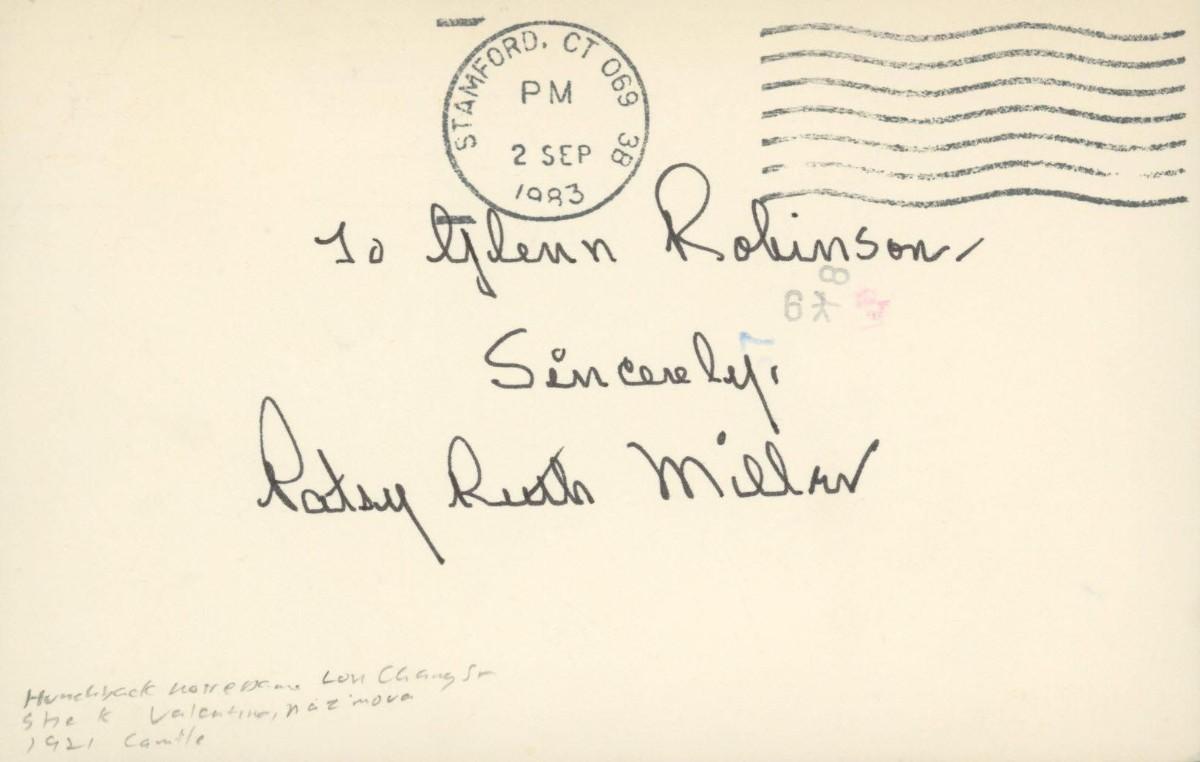 STAMFORD, CT 069 3B
PM
2 SEP
1983
To Glenn Robinson,
Sincerely,
Patsy Ruth Miller
Hunchback Notre Dame Lon Chaney Sr
Valentino, Nazimova
1921 Camille